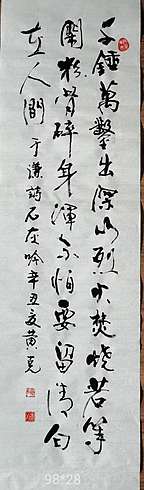 千锤萬鑿出深山烈火焚燒若等
閑粉骨碎身渾不怕要留清白
在人間 于謙詩石灰吟辛丑夏黄克
98*28